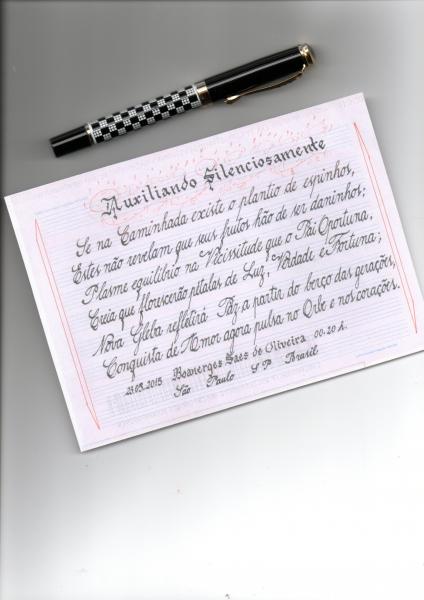 Auxiliando Silenciosamente
Se na Caminhada existe o plantio de espinhos,
Estes não revelam que seus frutos hão de ser daninhos;
Plasme equilíbrio na Vicissitude que o Pai Oportuna,
Creia que florescerão pétalas de Luz, Verdade e Fortuna;
Nova Gleba refletirá Paz a partir do berço das gerações,
Conquista de Amor agora pulsa no Orbe e nos corações.
23.03.2015 Boanerges Saes de Oliveira 00:20 A.
São Paulo SP Brasil